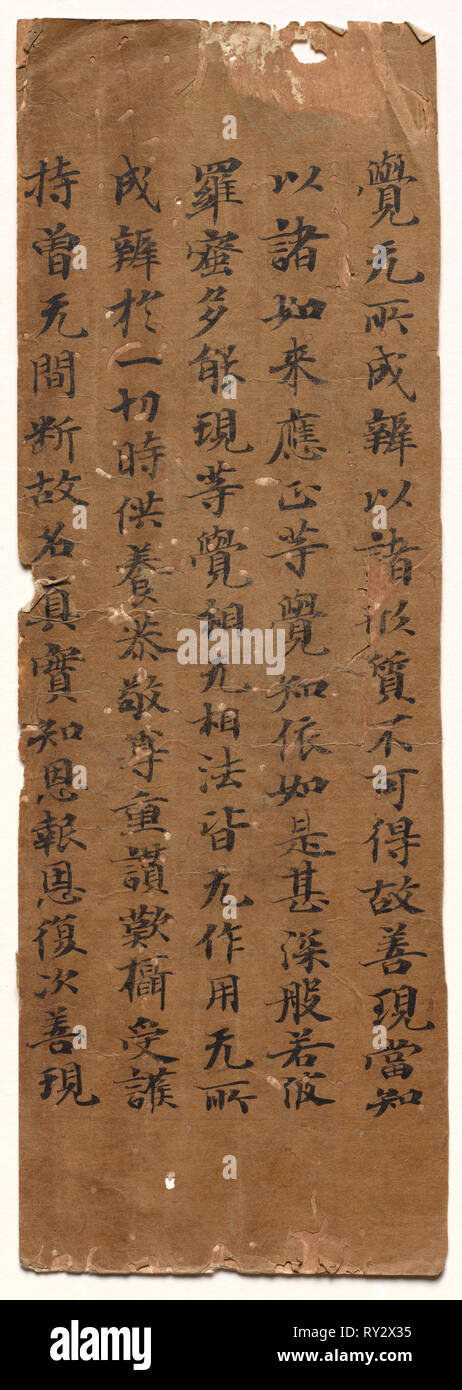 覺无所成辦以諸形質不可得故善現當知
以諸如来應正等覺知依如是甚深般若波
羅蜜多能現等覺相无相法皆无作用无所
成辦於一切時供養恭敬尊重讃歎攝受護
持曽无間断故名真實知恩報恩復次善現
alamy
a
a
a
a
alamy
Image ID: RY2X35
www.alamy.com